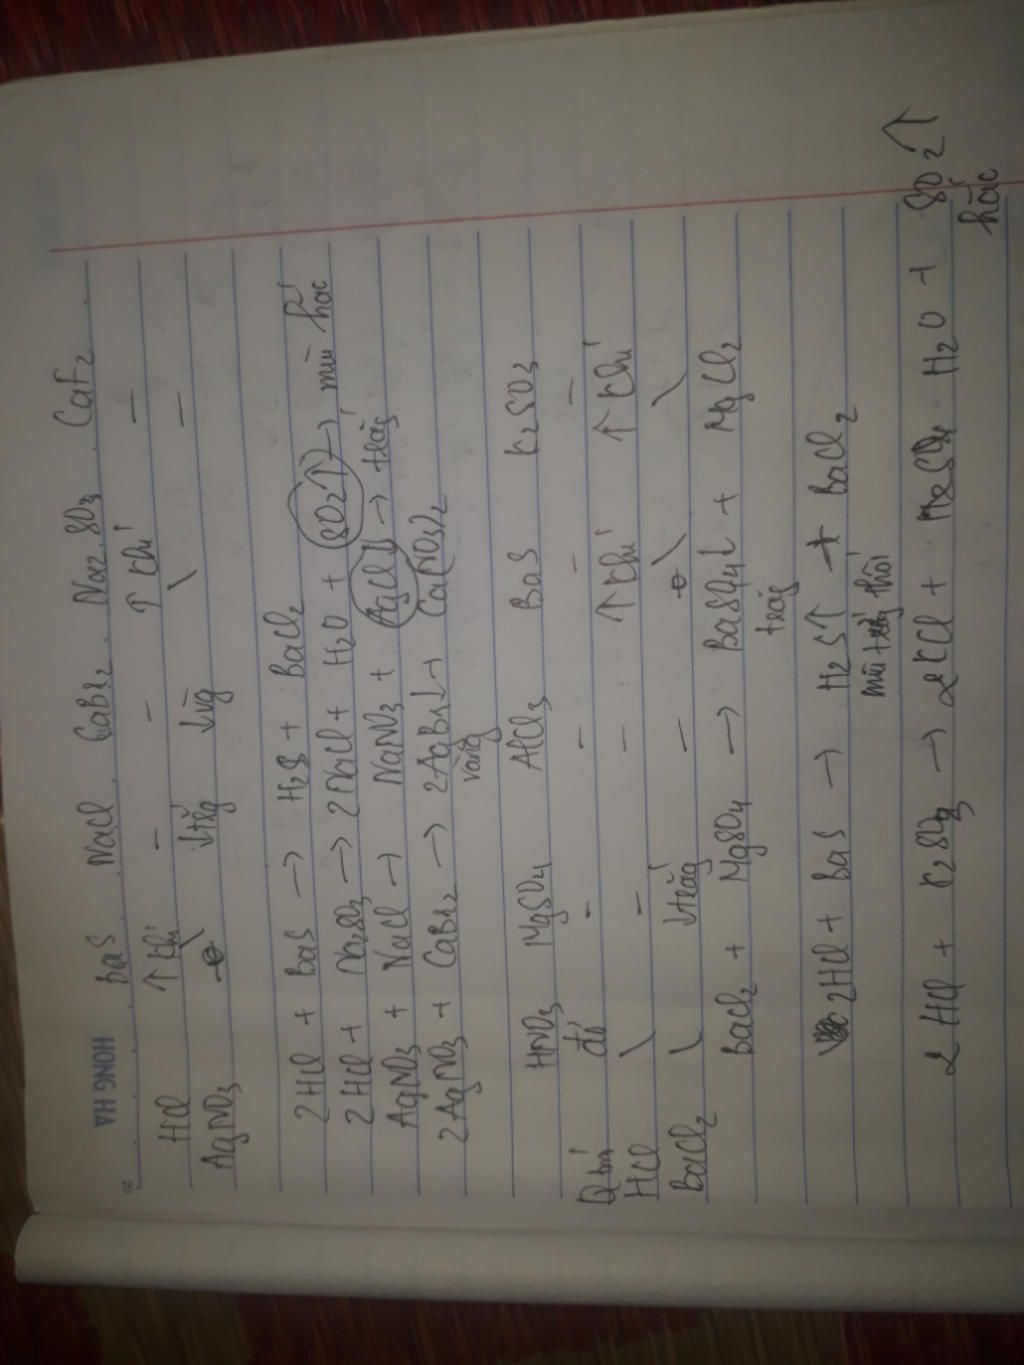 20 HONG HA
BaS NaCl CaBr2 Na2SO3 CaF2
HCl ↑ khí – – ↑ khí –
AgNO3 \ ↓trắg ↓vàg \ –
2HCl + BaS → H2S + BaCl2
2HCl + Na2SO3 → 2NaCl + H2O + SO2↑ → mùi hắc
AgNO3 + NaCl → NaNO3 + AgCl↓ → trắg
2AgNO3 + CaBr2 → 2AgBr↓ + Ca(NO3)2
vàng
HNO3 MgSO4 AlCl3 BaS K2SO3
Quì đỏ – – – –
HCl \ – – ↑ khí ↑ khí
BaCl2 \ ↓trắg – \ \
BaCl2 + MgSO4 → BaSO4↓ + MgCl2
trắg
2HCl + BaS → H2S↑ + BaCl2
mùi thối
2HCl + K2SO3 → 2KCl + H2O + SO2↑
hắc